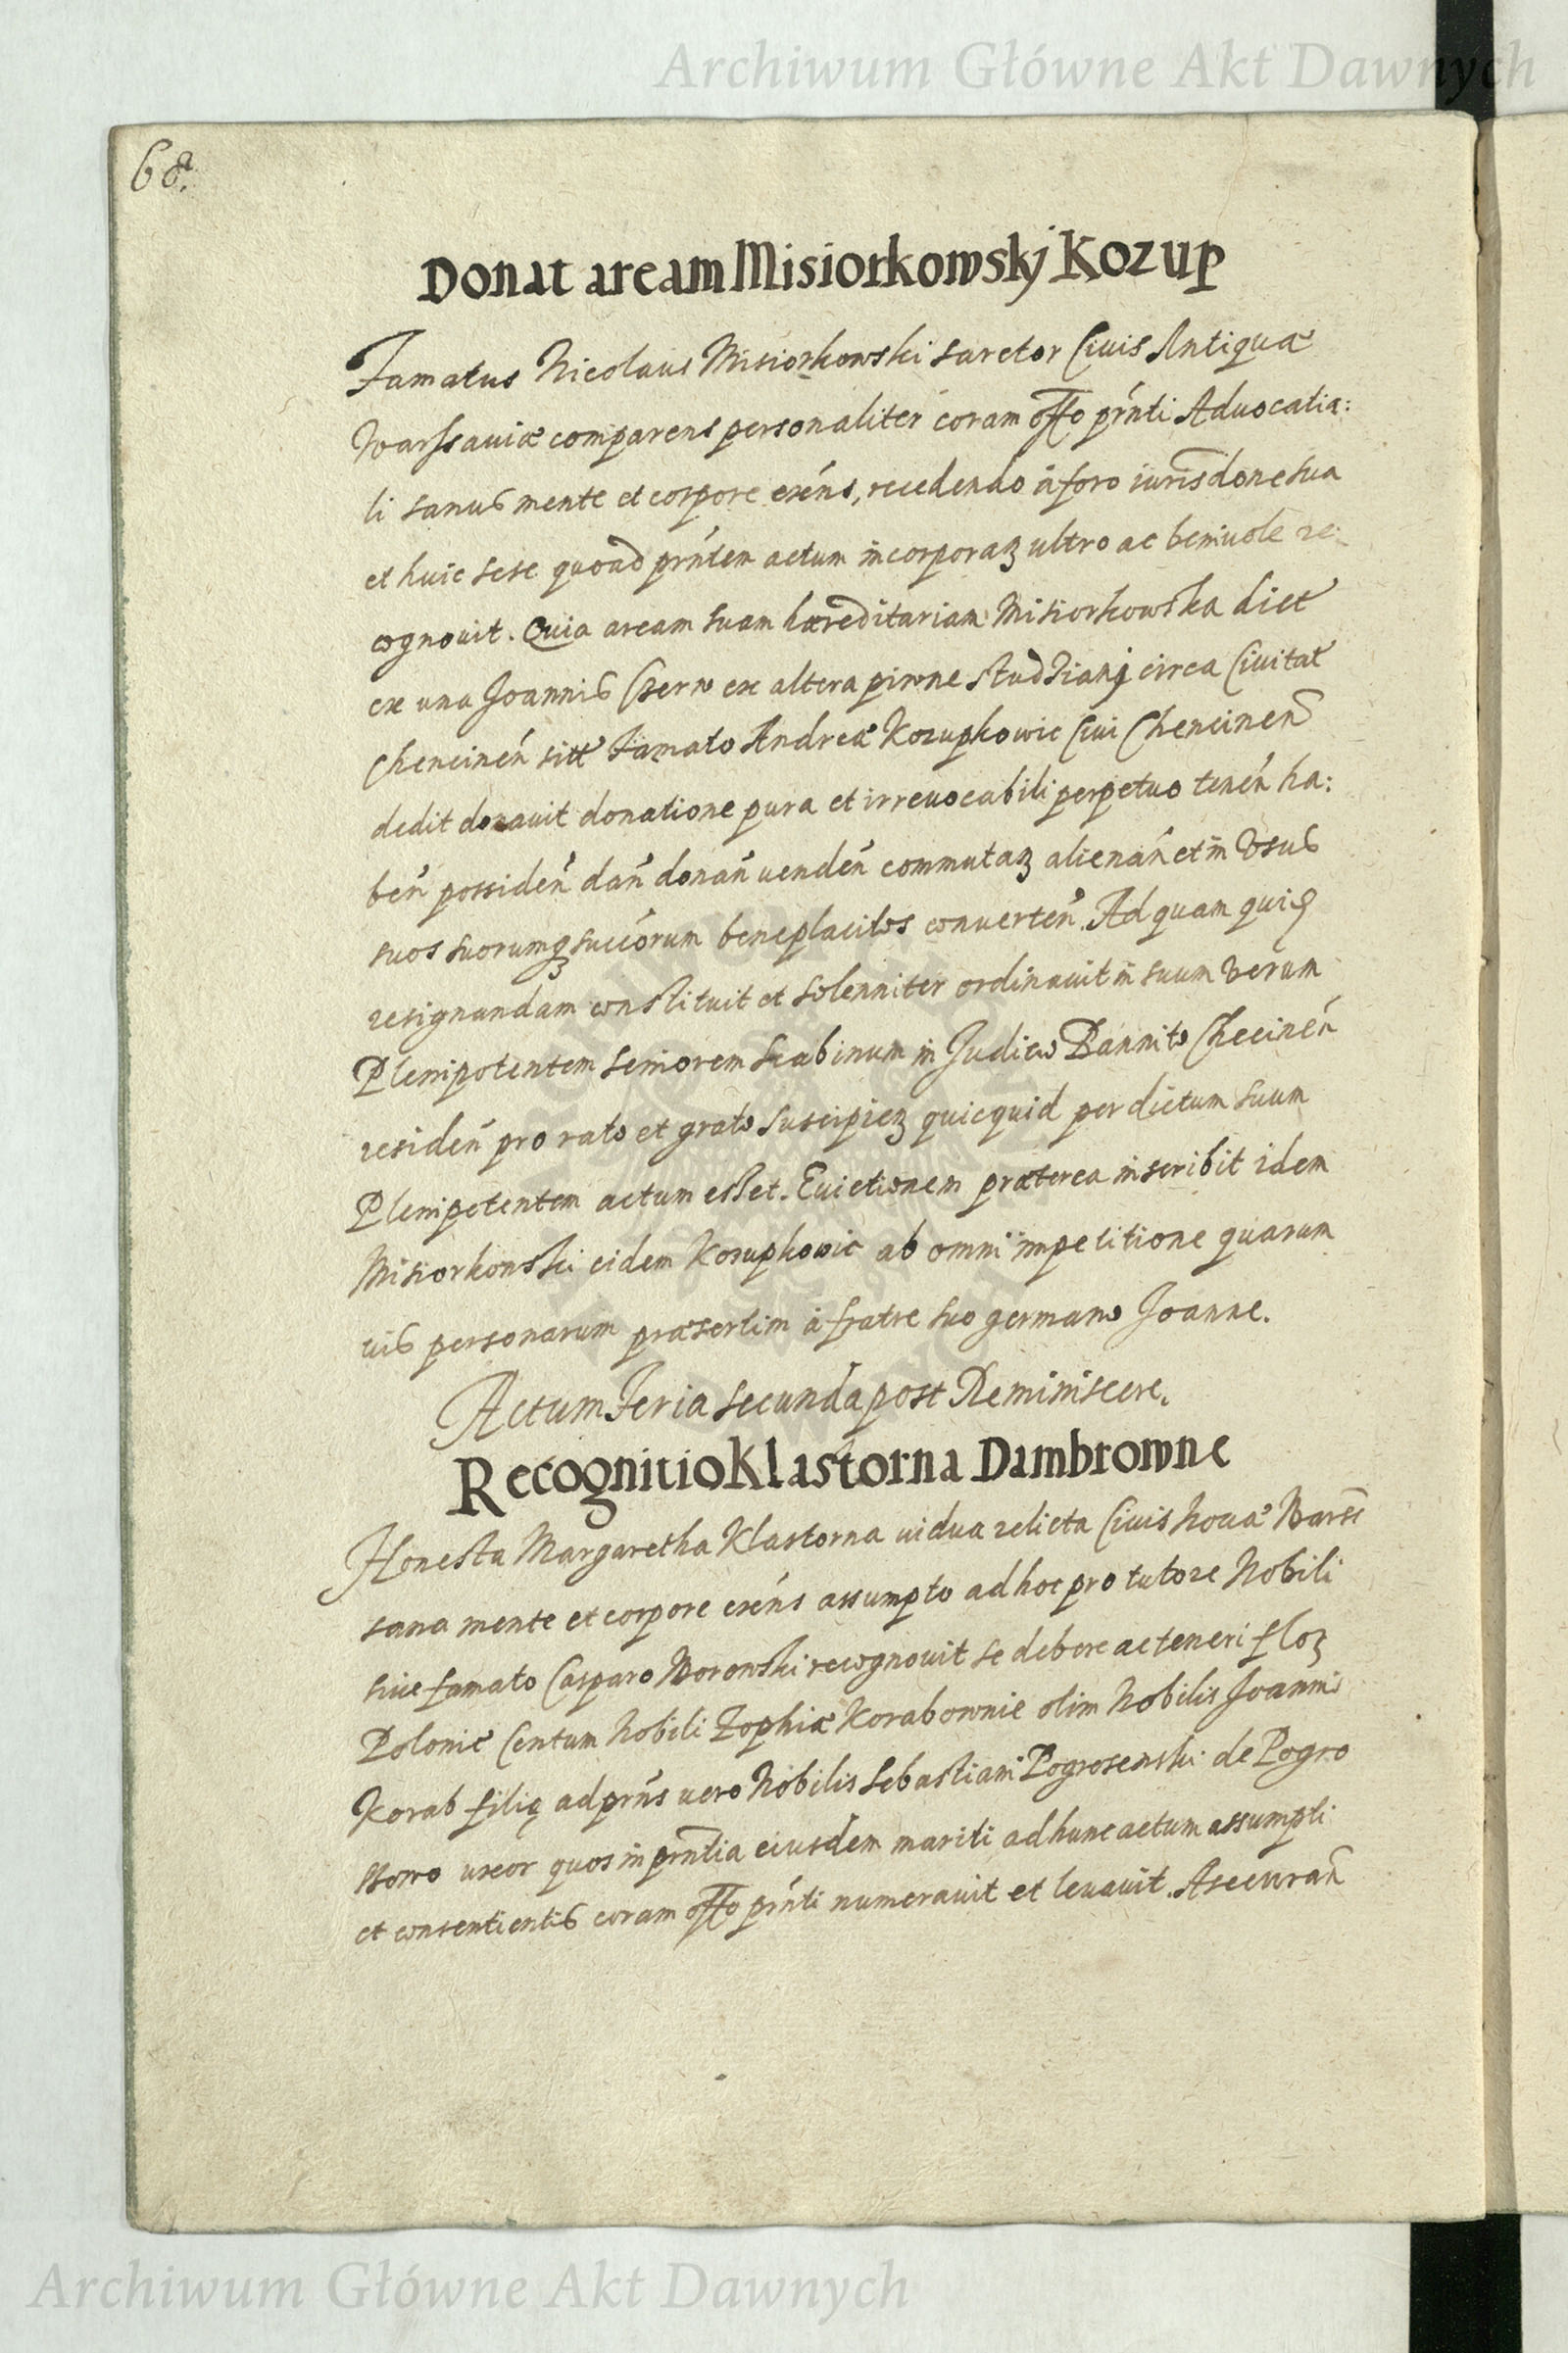 Archiwum Główne Akt Dawnych
68.
Donat aream Misiorkowskj Kozup
Famatus Nicolaus Misiorkowski sarctor Ciuis Antiquæ
Warssauiæ comparens personaliter coram offo prńti Aduocatia:
li sanus mente et corpore exéns, recedendo à foro iurisdone sua
et huic sese quoad prńtem actum incorporaz ultro ac beniuole re:
cognouit. Quia aream suam hæreditariam Misiorkowska dict
ex una Joannis Czerw ex altera piwne studzianj circa Ciuitat
Chencineń sitt Famato Andreæ Kozupkowic Ciui Chencinen
dedit donauit donatione pura et irreuocabili perpetuo teneń ha:
beń possideń dań donań uendeń commutaz alienań et in vsus
suos suorumqz succórum beneplacitos conuerteń. Ad quam quiꝗ
resignandam constituit et solenniter ordinauit in suum verum
Plenipotentem seniorem scabinum in Judicio Bannito Checineń
resideń pro rato et grato suscipiez quicquid per dictum suum
Plenipotentem actum esset. Euictionem præterea inscribit idem
Misiorkowski eidem Kozupkowic ab omni impetitione quarum
uis personarum præsertim à fratre suo germano Joanne.
Actum Feria secunda post Reminiscere.
Recognitio Klastorna Dambrowne
Honesta Margaretha Klastorna uidua relicta Ciuis Nouæ Warss
sana mente et corpore exéns assumpto ad hoc pro tutore Nobili
siue famato Casparo Worowski recognouit se debere ac teneri floz
Polonic Centum Nobili Zophiæ Korabownie olim Nobilis Joannis
Korab filię ad prńs uero Nobilis Sebastiani Pogroszewski de Pogro
szewo uxor quos in prńtia eiusdem mariti ad hunc actum assumpti
et consentientis coram offo prńti numerauit et leuauit. Asecurań
Archiwum Główne Akt Dawnych